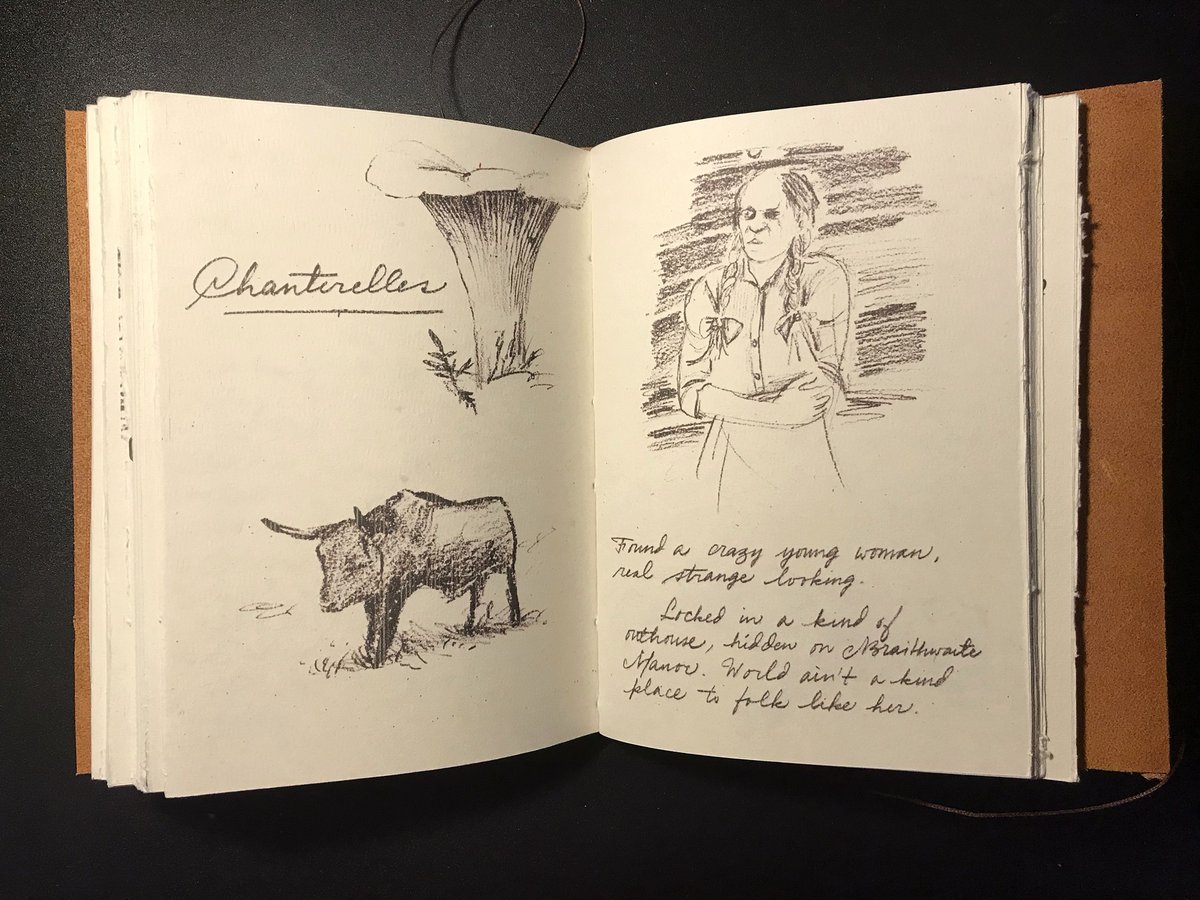 Chanterelles
Found a crazy young woman,
real strange looking.
Locked in a kind of
outhouse, hidden on Braithwaite
Manor. World ain't a kind
place to folk like her.